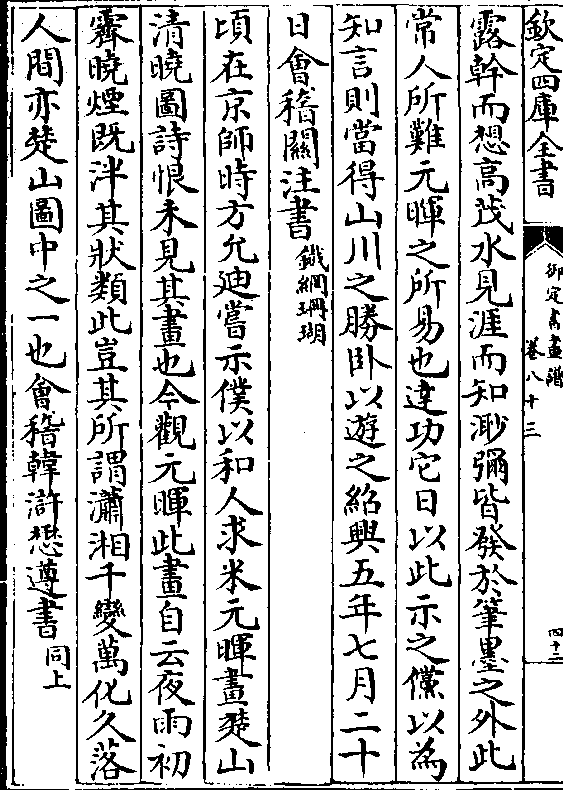 欽定四庫全書
御定書畫譜
卷八十三
四十二
露幹而想高茂水見涯而知渺彌皆發於筆墨之外此
常人所難元暉之所易也達功它日以此示之儻以為
知言則當得山川之勝卧以遊之紹興五年七月二十
日會稽關注書鐵網珊瑚
頃在京師時方允廸嘗示僕以和人求米元暉畫楚山
清曉圖詩恨未見其畫也今觀元暉此畫自云夜雨初
霽曉煙既泮其狀類此豈其所謂瀟湘千變萬化久落
人間亦楚山圖中之一也會稽韓滸懋遵書同上